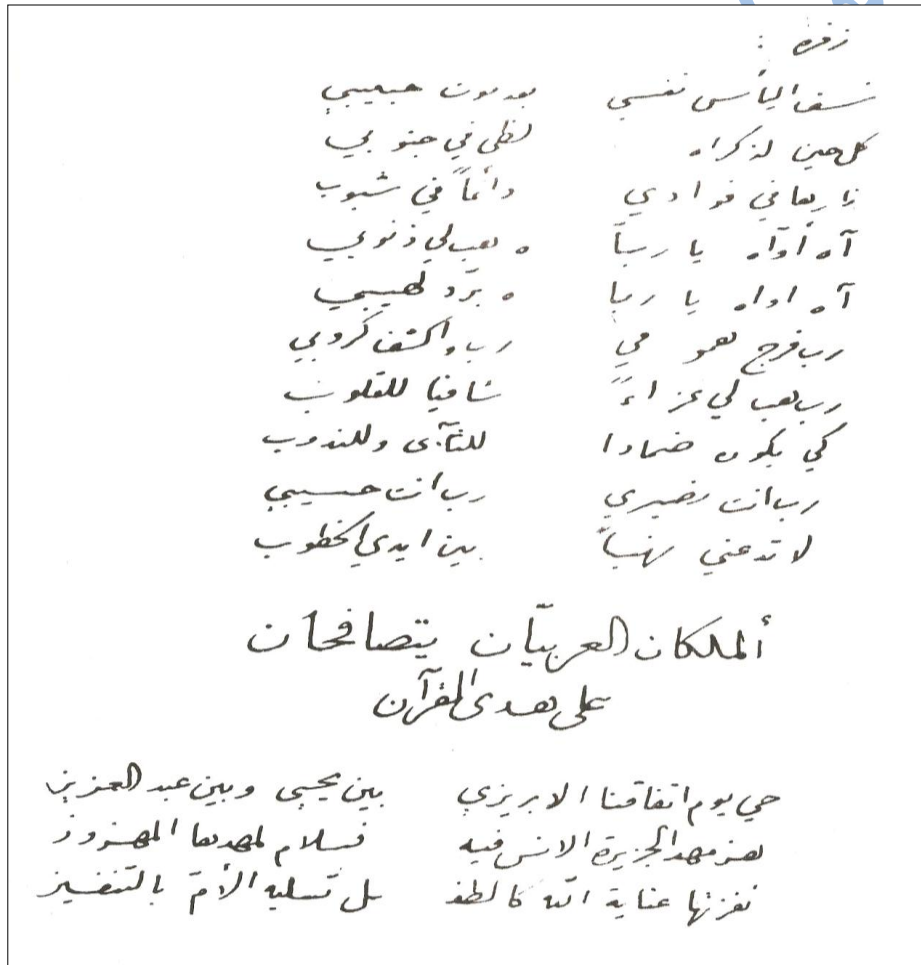 زفرة :
نسف اليأس نفسي بعد موت حبيبي
كل حين لذكراه لظى في جنوبي
نارها في فوادي دائماً في شبوب
آه أواه يا رباً ه هب لي ذنوبي
آه اواه يا ربا ه برّد لهيبي
رب فرج همومي رب واكشف كروبي
رب هب لي عزاءً شافيا للقلوب
كي يكون ضمادا للثآى وللندوب
رب انت نصيري رب انت حسيبي
لا تدعني نهباً بين ايدي الخطوب
ألملكان العربيّان يتصافحان
على هدى القرآن
حي يوم اتفاقنا الابريزي بين يحيى وبين عبد العزيز
هز مهد الجزيرة الانس فيه فسلام لمهدها المهزوز
نفزتها عناية الله كالطفـ ـل تسليه الأمّ بالتنفيز